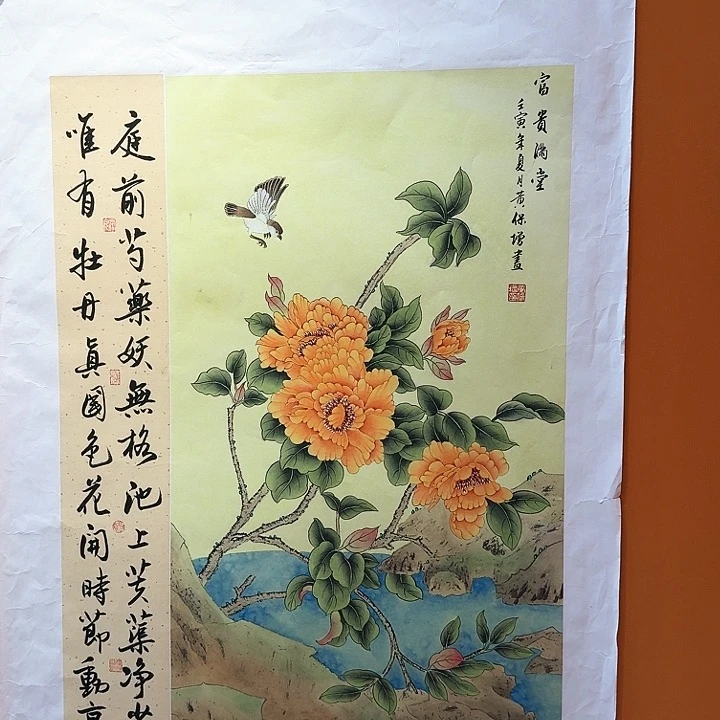 富貴滿堂
壬寅年夏月黃保增畫
庭前芍藥妖無格池上芙蕖净
唯有牡丹真國色花開時節動